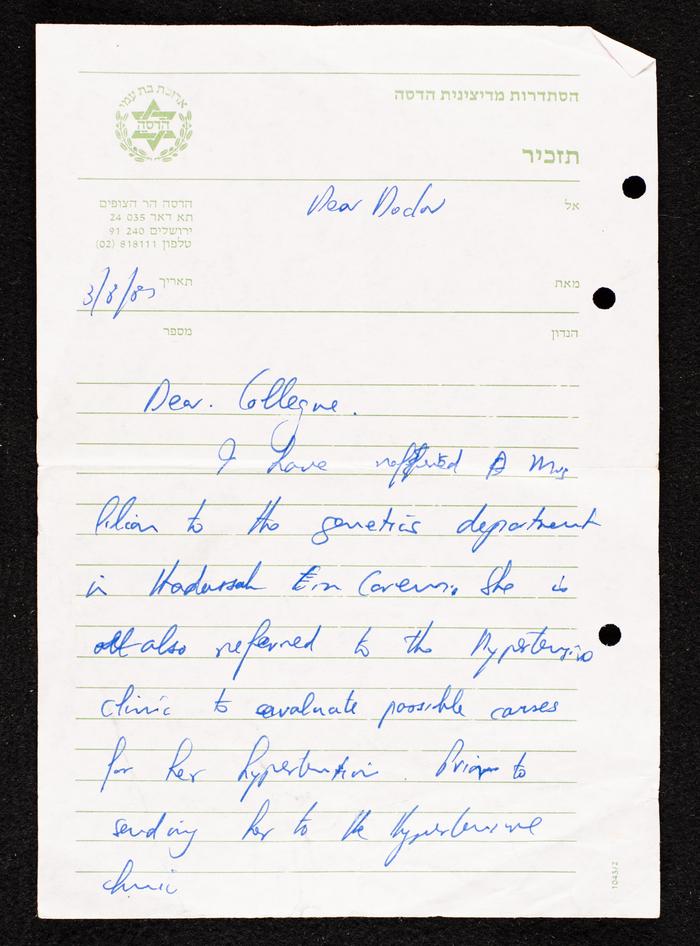 ארוכת בת עמי
הדסה
הסתדרות מדיצינית הדסה
תזכיר
הדסה הר הצופים
תא דאר 035 24
ירושלים 240 91
טלפון 818111 (02)
אל
Dear Doctor
תאריך
מאת
מספר
הנדון
Dear. Collegue.
I have reffered Mrs
lilian to the genetics department
in Hadassah Ein Carem. She is
also referred to the Hypertensive
clinic to evaluate possible causes
for her hypertension. Prior to
sending her to the Hypertensive
clinic
1043/2